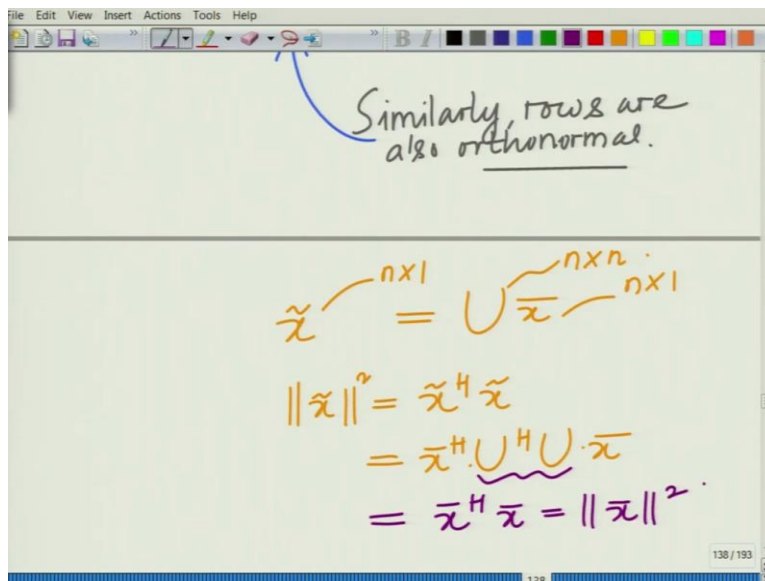 File Edit View Insert Actions Tools Help
Similarly, rows are
also orthonormal.
n×1
n×n.
n×1
x̃ = U x̄
||x̃||² = x̃ᴴ x̃
= x̄ᴴ. Uᴴ U . x̄
= x̄ᴴ x̄ = ||x̄||².
138 / 193
138